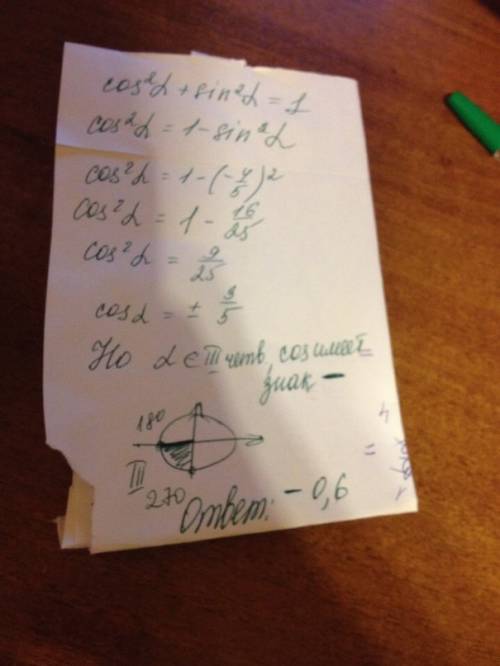 cos²α + sin²α = 1
cos²α = 1 - sin²α
cos²α = 1 - (-4/5)²
cos²α = 1 - 16/25
cos²α = 9/25
cosα = ± 3/5
Но α ∈ III четв, cos имеет
знак -
180
III
270
Ответ: - 0,6